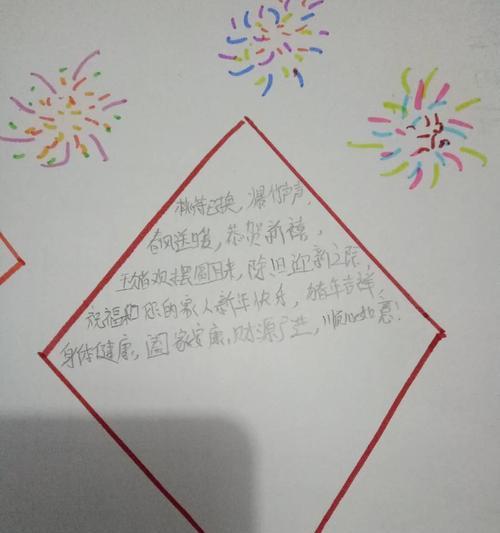 桃符已换，爆竹声声，
春风送暖，恭贺新禧，
玉猪欢摆团圆来，除旧迎新之际，
祝福和你的家人新年快乐，猪年吉祥，
身体健康，阖家安康，财源广进，顺心如意！